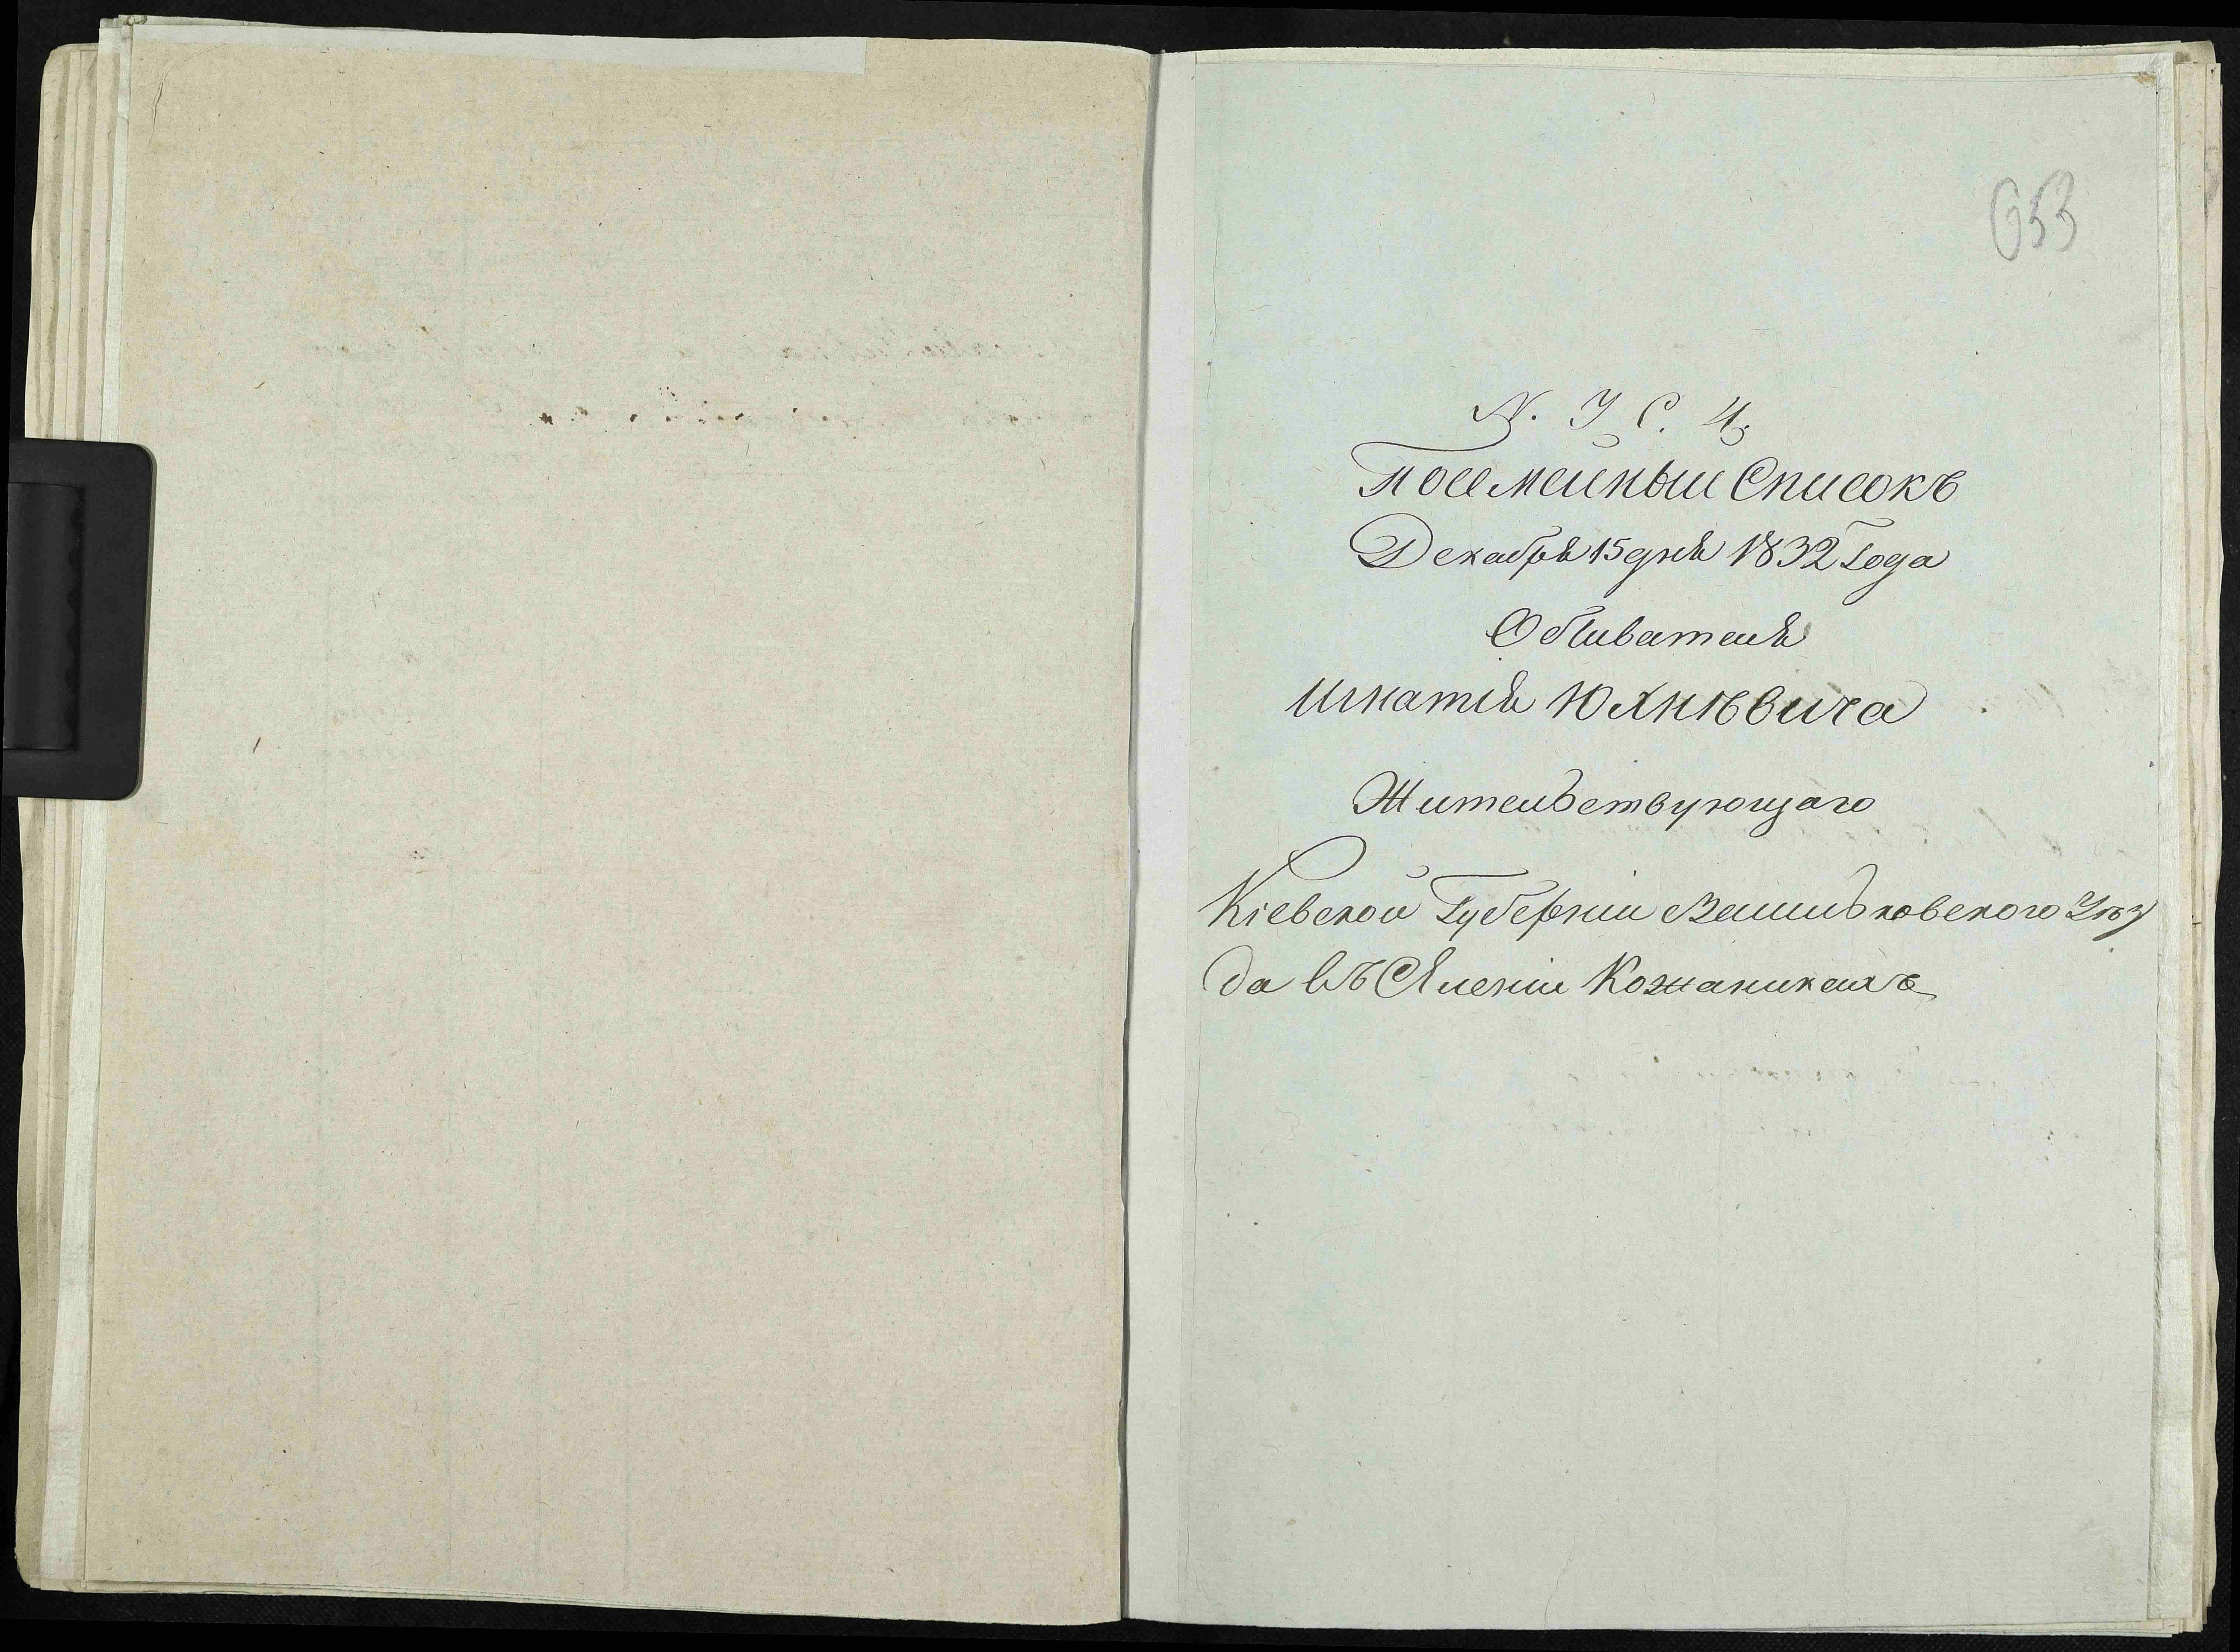 653
N. У С. 4.
Посемейный Списокъ
Декабря 15 дня 1832 Года
Обивателя
Игнатія Юхнѣвича
Жительствующаго
Кіевской Губерніи Васильковского Уѣз
да въ Сяленіи Кожаникахъ